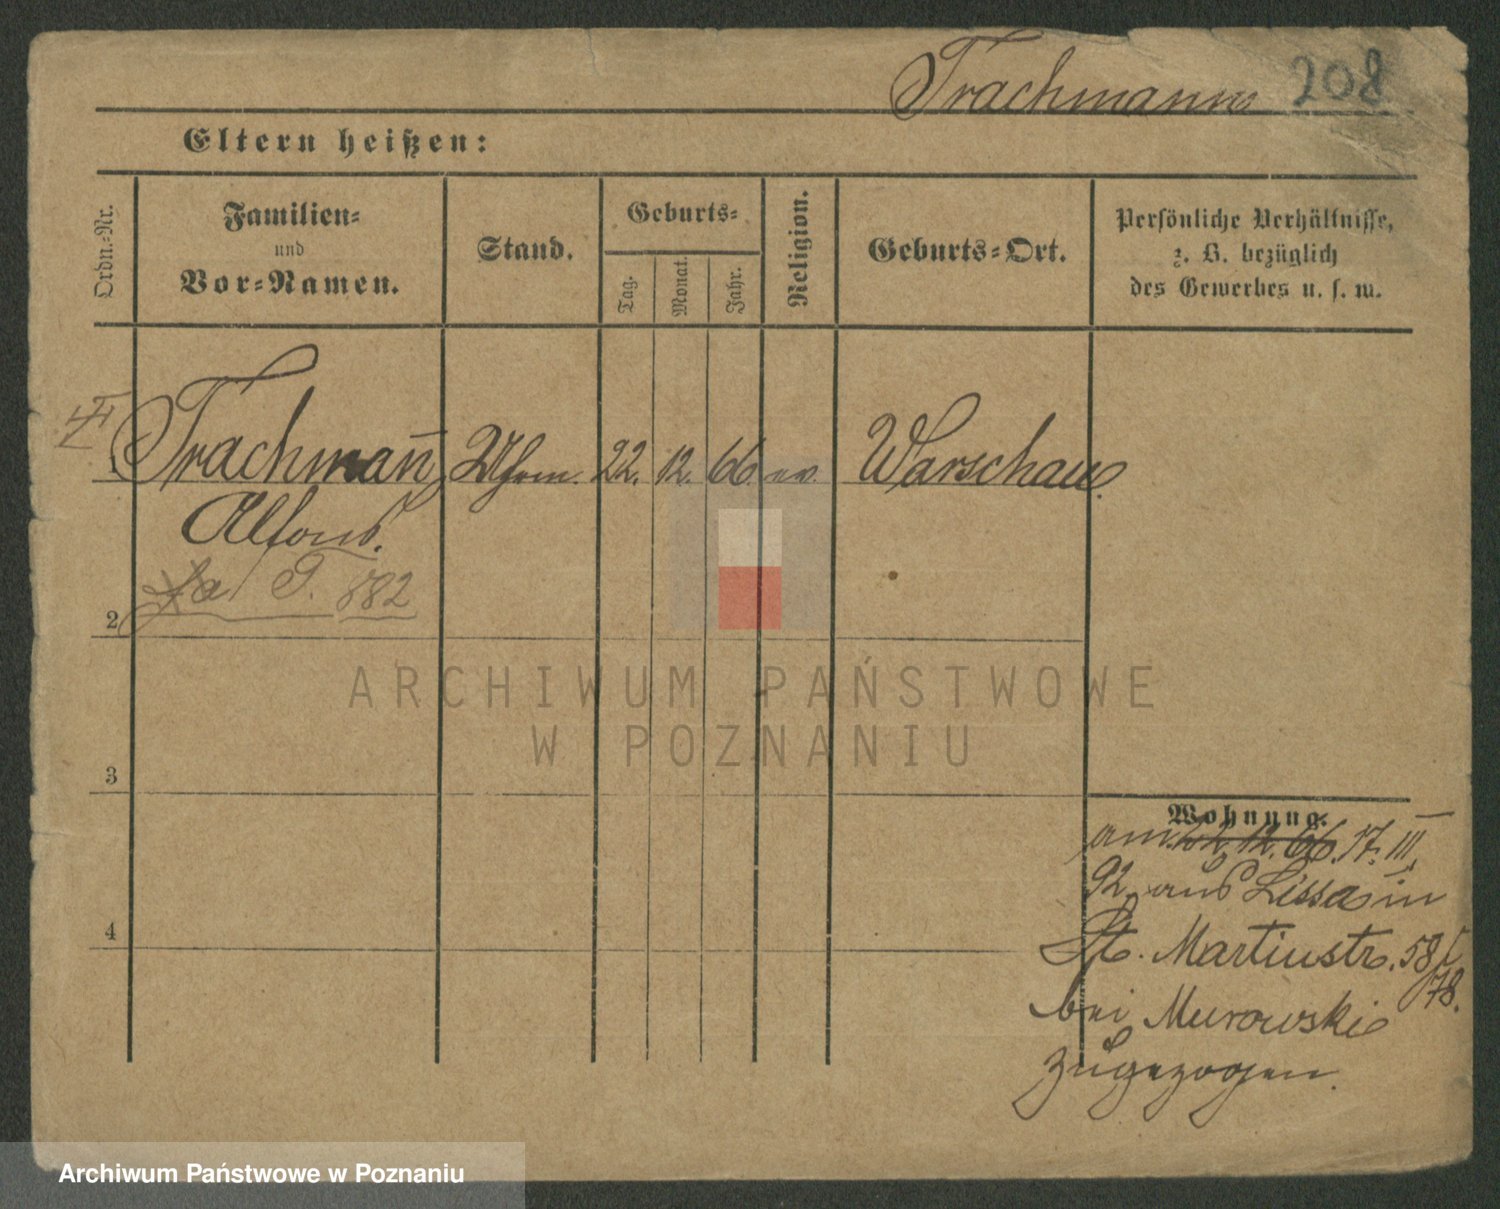 Trachmann 208
Eltern heißen:
Ordn.-Nr.
Familien-
und
Vor-Namen.
Stand.
Geburts-
Tag.
Monat.
Jahr.
Religion.
Geburts-Ort.
Persönliche Verhältnisse,
z. B. bezüglich
des Gewerbes u. s. w.
1 Trachman̄ 22. 12. 66 ev. Warschau.
Alfons.
882
2
3
4
ARCHIWUM PAŃSTWOWE
W POZNANIU
Wohnung.
am 22. 12. 66. 17. III.
92 aus Lissa in
St. Martinstr. 58/
78.
bei Murowski
zugezogen.
Archiwum Państwowe w Poznaniu